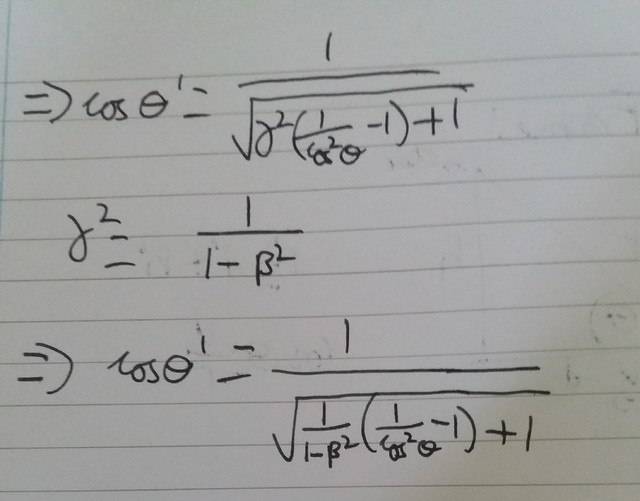 ⇒ cos θ' = 1 / √(γ²(1/cos²θ − 1) + 1)
γ² = 1 / (1 − β²)
⇒ cosθ' = 1 / √(1/(1−β²) (1/cos²θ − 1) + 1)